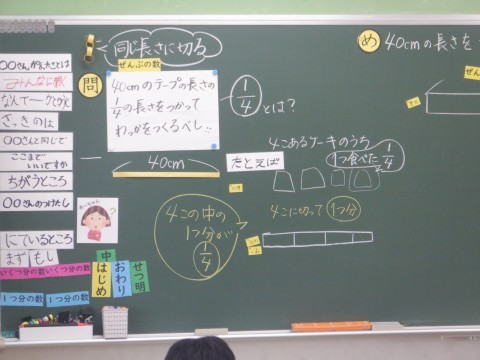 同じ長さに切る
ぜんぶの数
問
40cmのテープの長さの
1/4の長さをつかって
わっかをつくるべし!!
1/4とは?
40cm
たとえば
4こあるケーキのうち
1つ食べた 1/4
4こに切って1つ分
4この中の
1つ分が
1/4
め 40cmの長さを
みんなに聞く
さっきのは
○○さんと同じで
ここまで
いいですか
ちがうところ
○○さんのつけたし
にているところ
まず もし
いくつ分の数 いくつ分の数
1つ分の数 1つ分の数
はじめ
中
おわり
せつ明